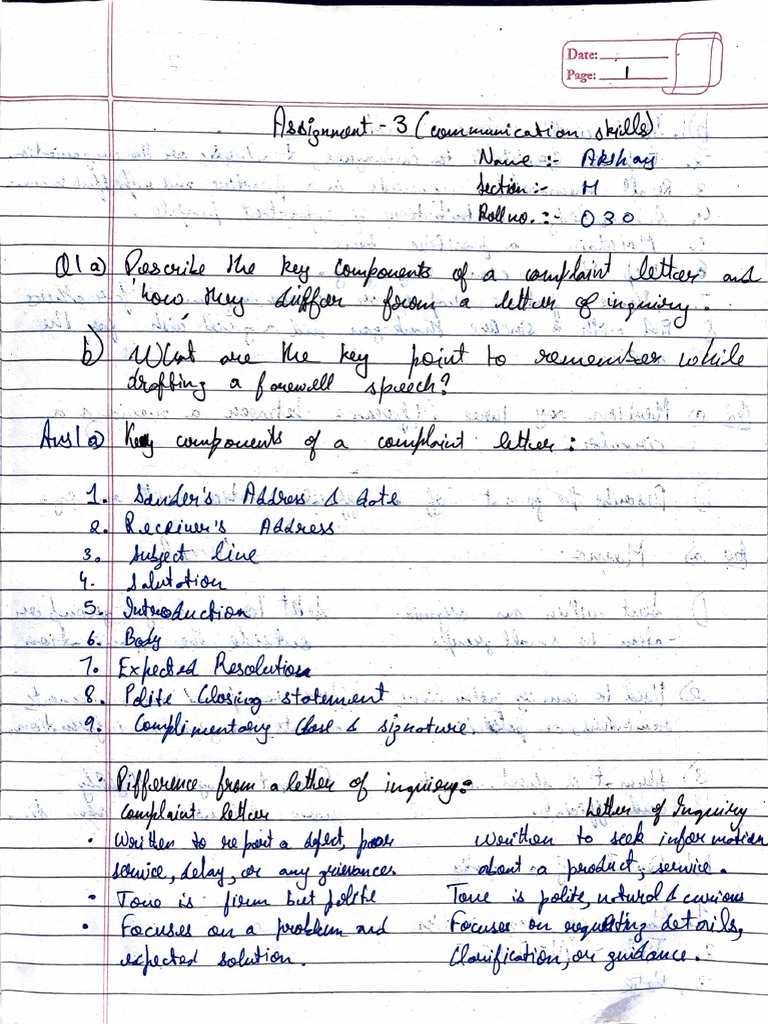 Date:
Page: 1
Assignment - 3 (communication skills)
Name :- Akshay
Section :- M
Roll no. :- 030
Q1 a) Describe the key components of a complaint letter and
how they differ from a letter of inquiry.
b) What are the key point to remember while
drafting a farewell speech?
Ans1 a) Key components of a complaint letter :
1. Sender's Address & date
2. Receiver's Address
3. Subject line
4. Salutation
5. Introduction
6. Body
7. Expected Resolution
8. Polite / Closing statement
9. Complimentary close & signature
• Difference from a letter of inquiry :-
Complaint letter Letter of Inquiry
• Written to report a defect, poor Written to seek information
service, delay, or any grievances. about a product, service.
• Tone is firm but polite Tone is polite, natural & curious
• Focuses on a problem and Focuses on requesting details,
expected solution. Clarification, or guidance.